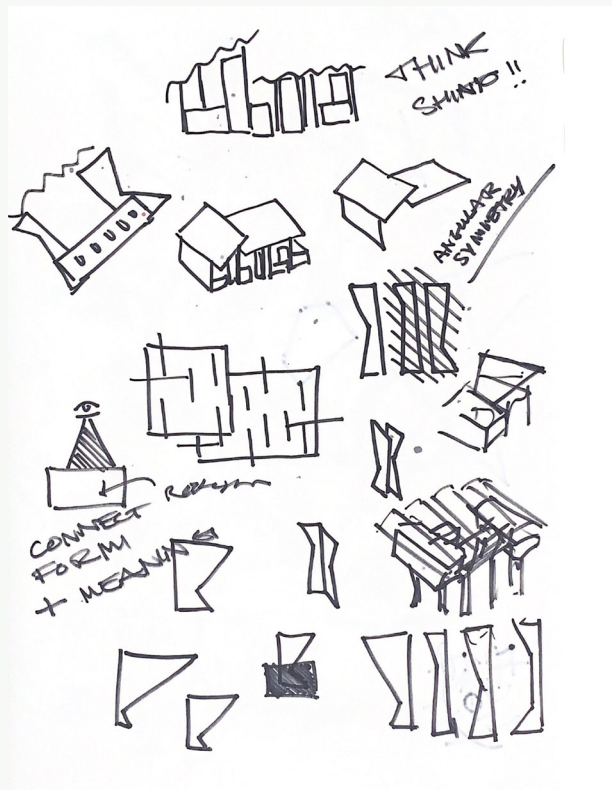 THINK
SHINTO!!
ANGULAR
SYMMETRY
CONNECT
FORM
+ MEANING